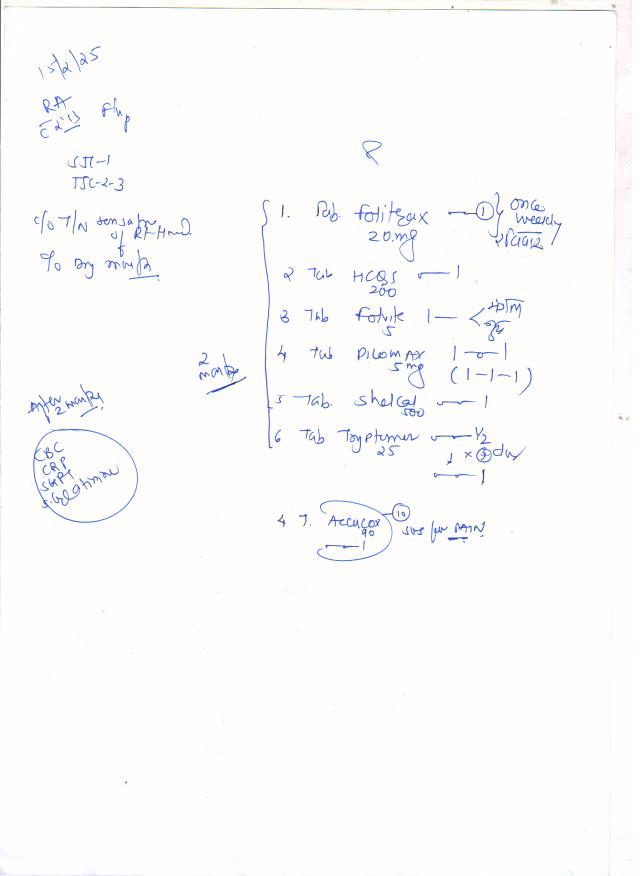 15/2/25
RA F/up
SJC-1
TJC-2-3
c/o T/N sensation
of Rt Hand
c/o dry mouth
After
2 months
CBC
CRP
SGPT
S. Creatinine
2
months
1. Tab. Folitrax — 1 once
20 mg weekly
रविवार
2 Tab HCQS — 1
200
3 Tab Folvite 1 —
5
4 Tab PILOMAX 1—0—1
5 mg (1-1-1)
5 Tab. Shelcal — 1
500
6 Tab Tryptomer — 1/2
25
— 1
4 T. ACCUCOX 10 SOS for PAIN
90
— 1